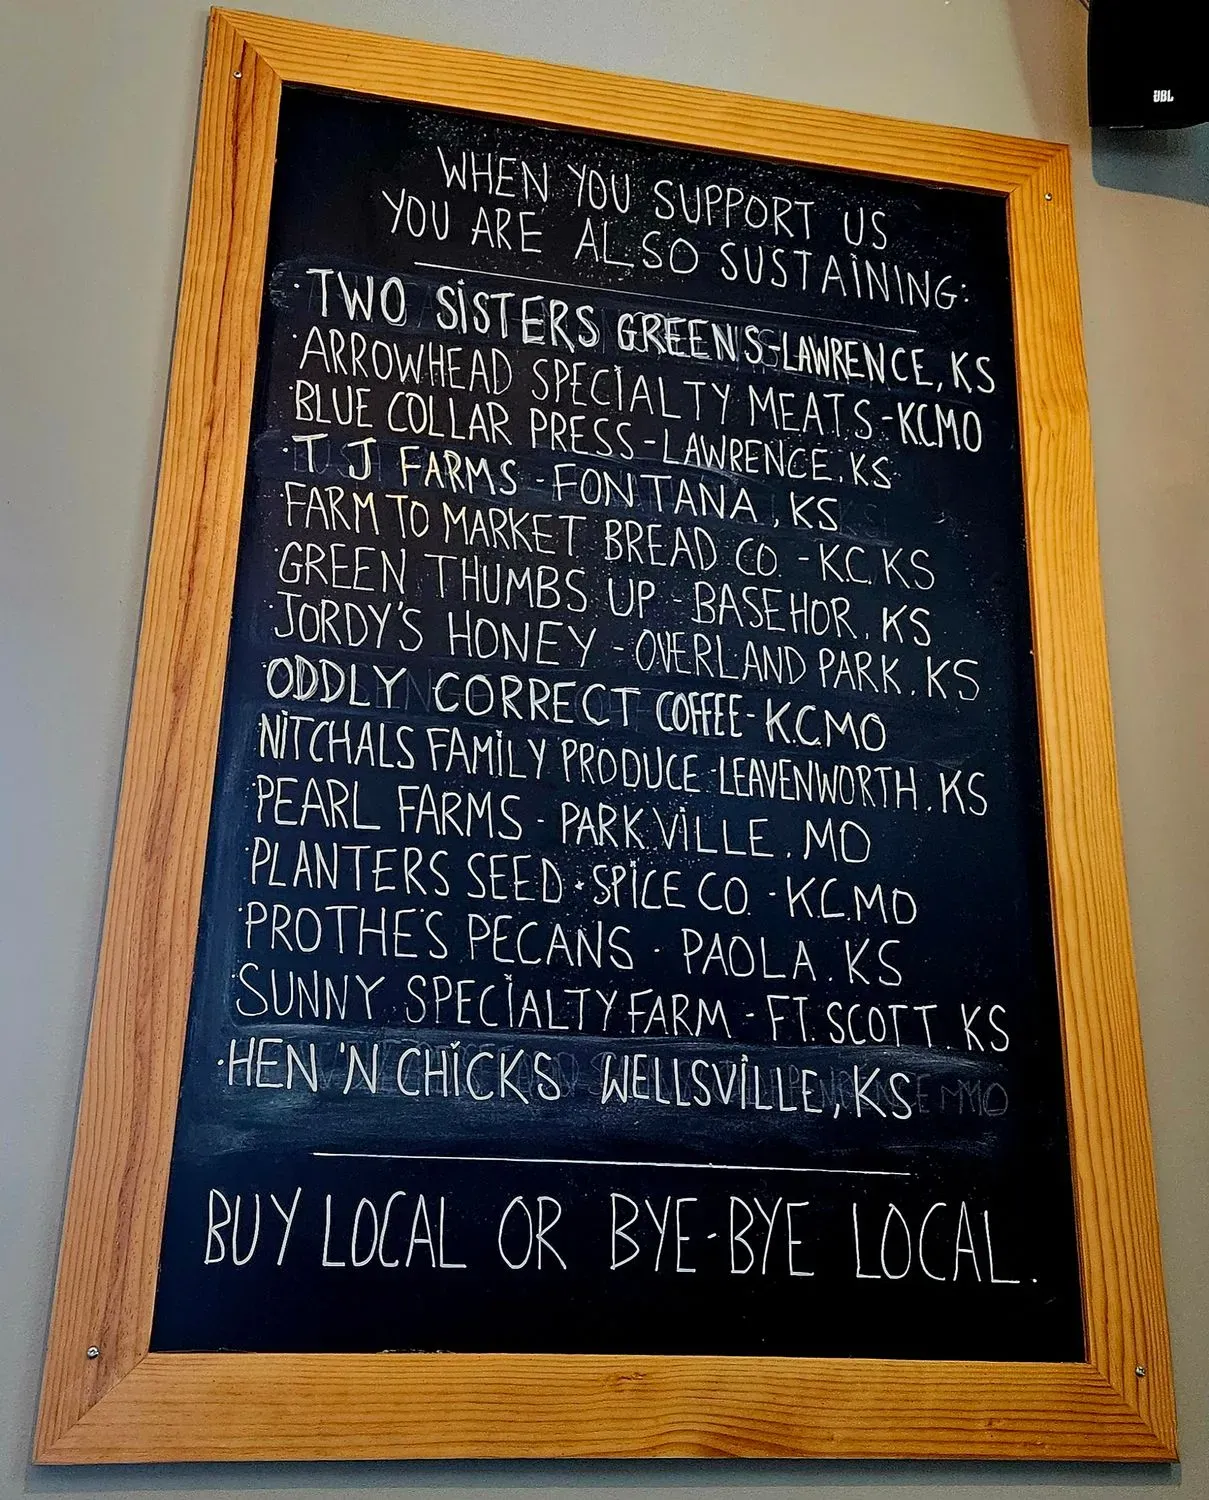 WHEN YOU SUPPORT US
YOU ARE ALSO SUSTAINING:
·TWO SISTERS GREENS-LAWRENCE, KS
·ARROWHEAD SPECIALTY MEATS-KCMO
·BLUE COLLAR PRESS-LAWRENCE, KS
·T J FARMS-FONTANA, KS
·FARM TO MARKET BREAD CO.-K.C. KS
·GREEN THUMBS UP-BASEHOR. KS
·JORDY'S HONEY-OVERLAND PARK. KS
·ODDLY CORRECT COFFEE-K.C.MO
·NITCHALS FAMILY PRODUCE-LEAVENWORTH. KS
·PEARL FARMS-PARKVILLE. MO
·PLANTERS SEED·SPICE CO.-K.C.MO
·PROTHE'S PECANS-PAOLA. KS
·SUNNY SPECIALTY FARM-FT. SCOTT. KS
·HEN 'N CHICKS WELLSVILLE, KS
BUY LOCAL OR BYE-BYE LOCAL.
JBL